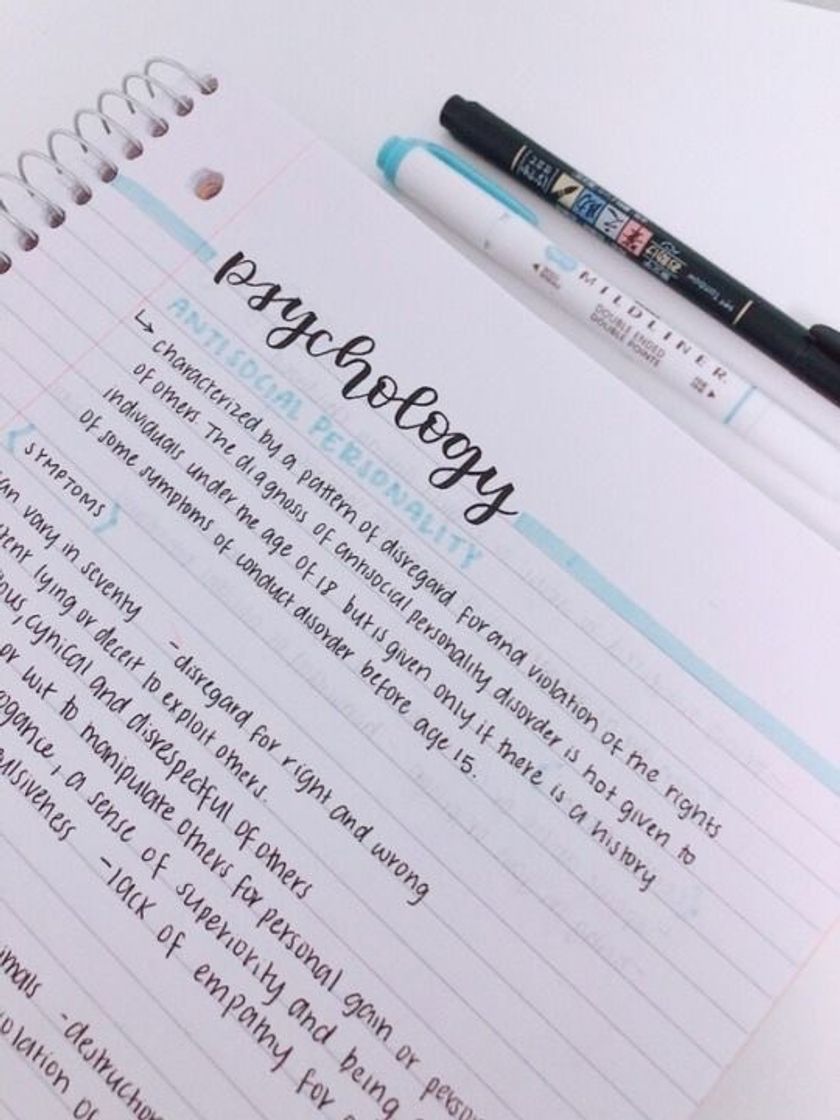 psychology
ANTISOCIAL PERSONALITY
↳ characterized by a pattern of disregard for and violation of the rights
of others. The diagnosis of antisocial personality disorder is not given to
individuals under the age of 18 but is given only if there is a history
of some symptoms of conduct disorder before age 15.
SYMPTOMS
can vary in severity -disregard for right and wrong
lying or deceit to exploit others.
cynical and disrespectful of others
or wit to manipulate others for personal gain or
a sense of superiority and being
-lack of empathy for
-destruction
MILDLINER
DOUBLE ENDED
DOUBLE POINTE
Tombow